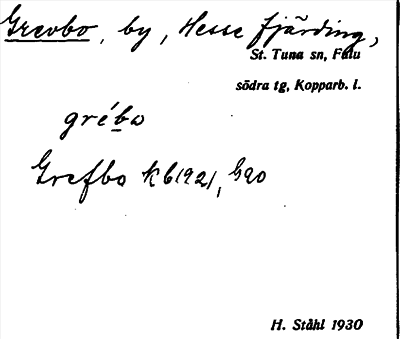 Grevbo, by, Hesse fjärding,
St. Tuna sn, Falu
södra tg, Kopparb. l.
gré̀bo
Grefbo kb1921, G90
H. Ståhl 1930